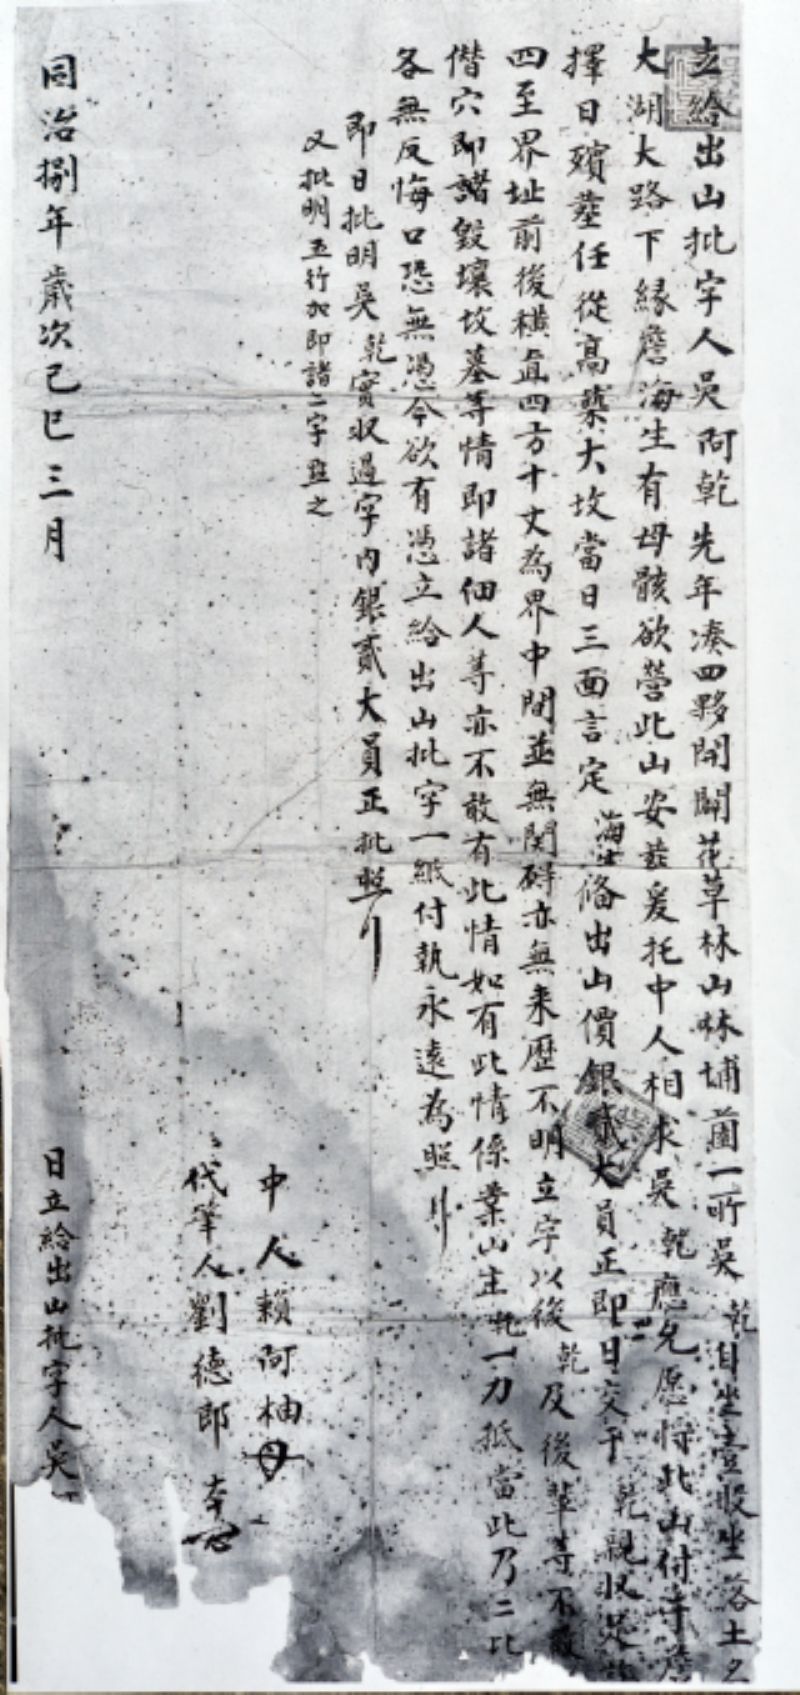 立給出山批字人吳阿乾先年湊四夥開闢花草林山林埔薗一所吳乾自坐壹股坐落土名
大湖大路下緣詹海生有母骸欲營此山安葬爰托中人相求吳乾應允愿將此山付與詹
擇日殯塟任從高築大坟當日三面言定海生俻出山價銀貳大員正即日交于乾親收足訖
四至界址前後橫直四方十丈為界中間並無関碍亦無来歷不明立字以後乾及後輩等不敢
僭穴即諸毀壞坟墓等情即諸佃人等亦不敢有此情如有此情係業山主乾一刀抵當此乃二比
各無反悔口恐無憑今欲有憑立給出山批字一紙付執永遠為照
即日批明吳乾實收過字內銀貳大員正批照
又批明五行加即諸二字照之
中人賴阿柚
代筆人劉德郎
同治捌年歲次己巳三月 日立給出山批字人吳